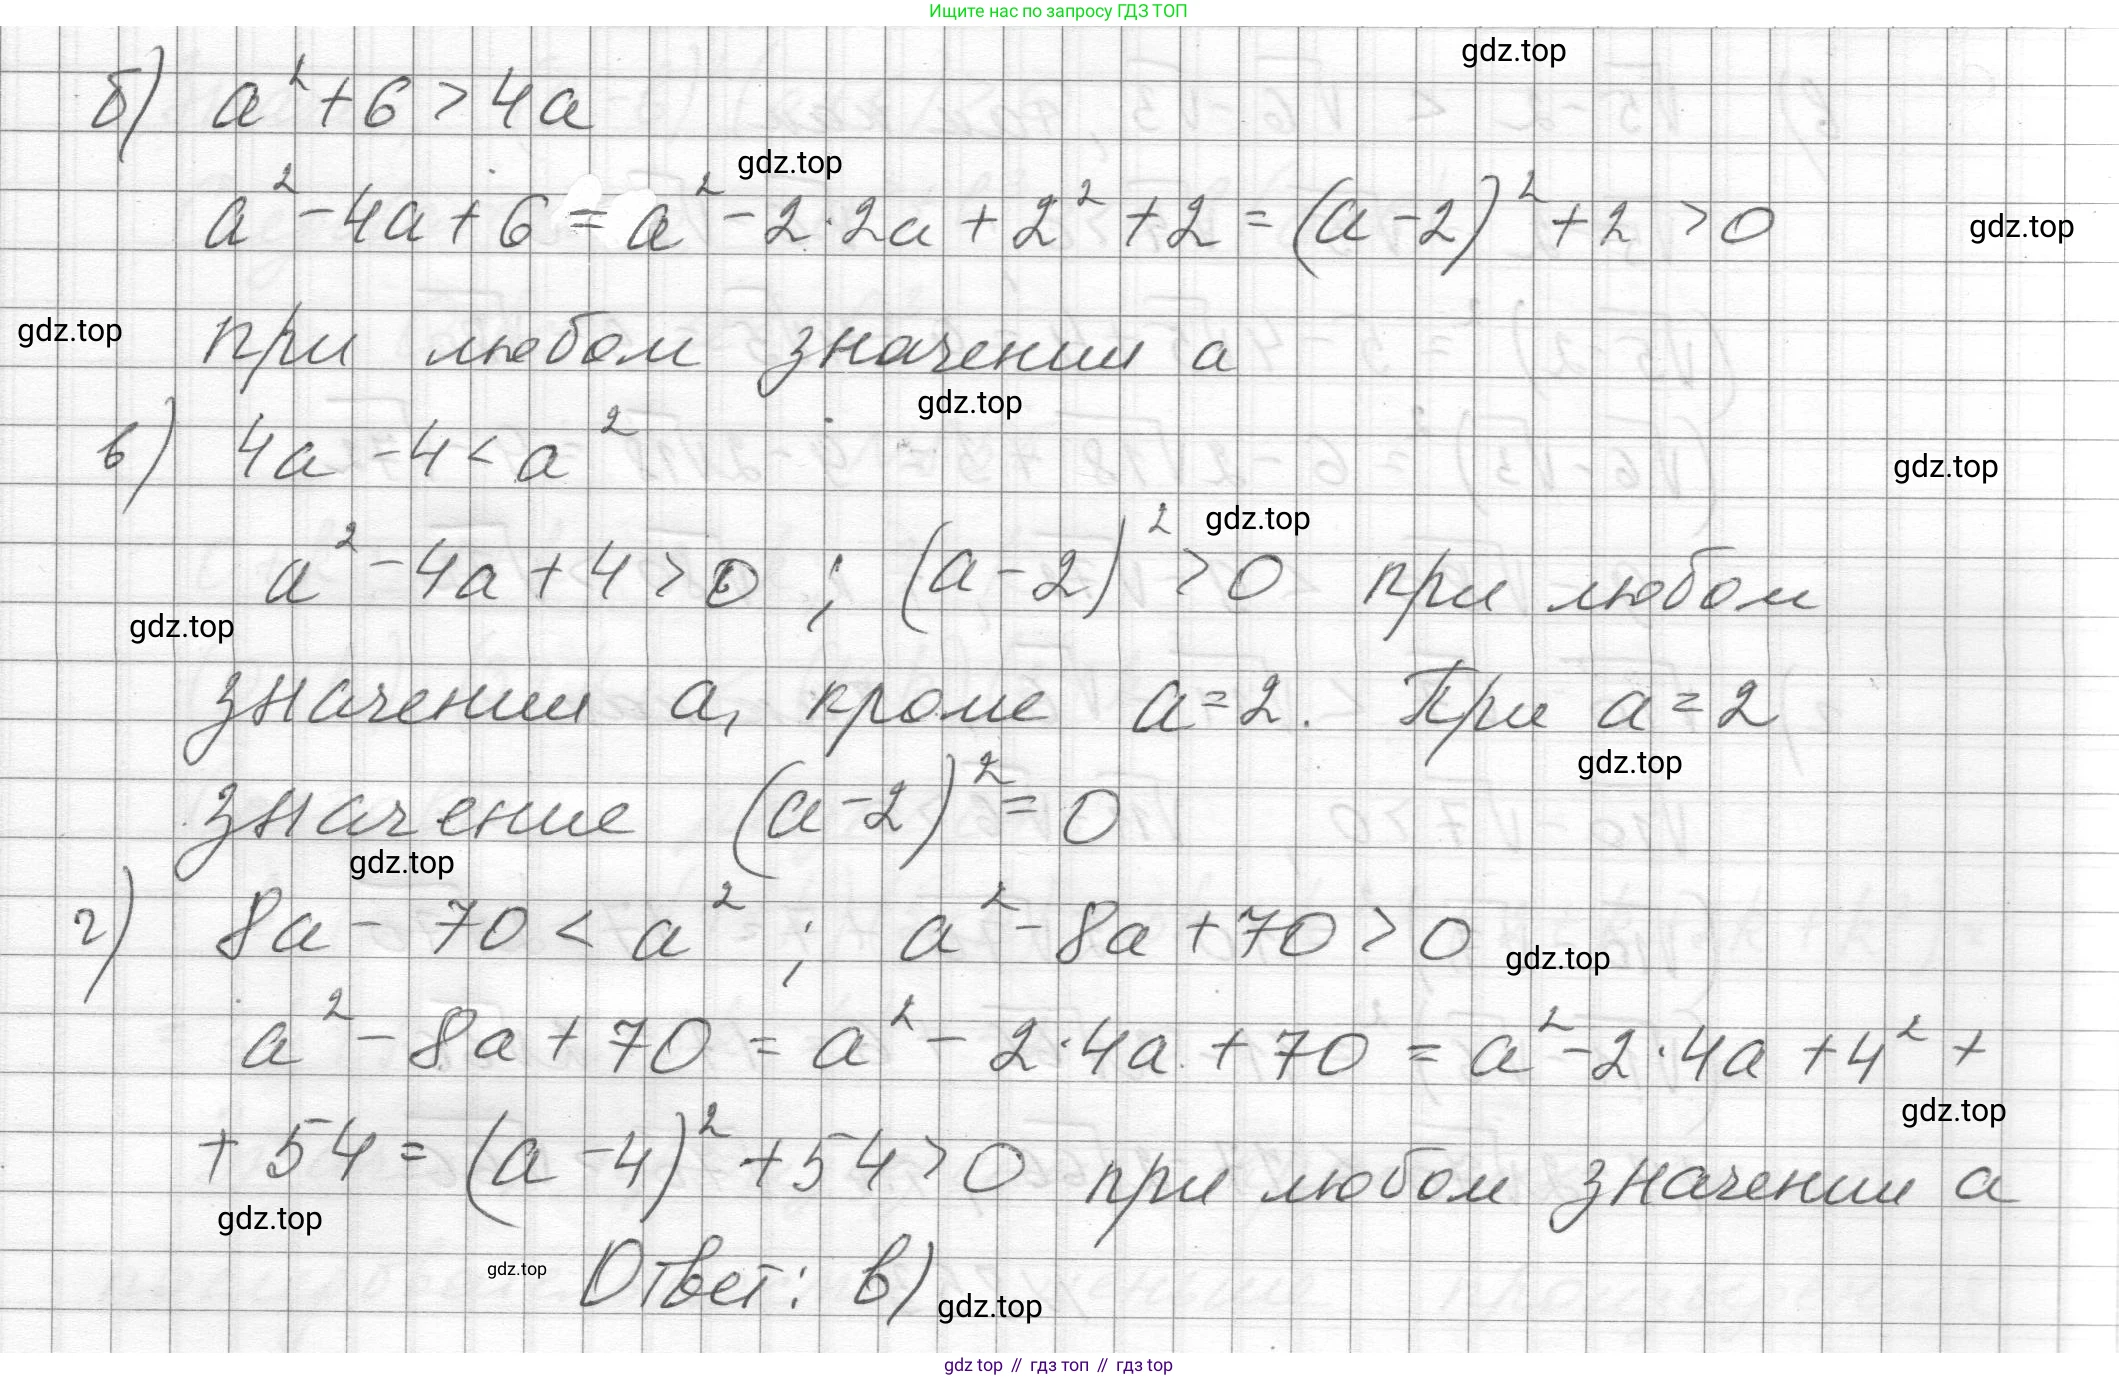 Ищите нас по запросу ГДЗ ТОП
gdz.top
б) a² + 6 > 4a
gdz.top
a² - 4a + 6 = a² - 2 · 2a + 2² + 2 = (a - 2)² + 2 > 0
gdz.top
gdz.top
при любом значении a
gdz.top
в) 4a - 4 < a²
gdz.top
gdz.top
a² - 4a + 4 > 0 ; (a - 2)² > 0 при любом
gdz.top
значении a, кроме a = 2. При a = 2
gdz.top
значение (a - 2)² = 0
gdz.top
г) 8a - 70 < a² ; a² - 8a + 70 > 0
gdz.top
a² - 8a + 70 = a² - 2 · 4a + 70 = a² - 2 · 4a + 4² +
gdz.top
+ 54 = (a - 4)² + 54 > 0 при любом значении a
gdz.top
gdz.top
Ответ: в)
gdz.top
gdz top // гдз топ // гдз top